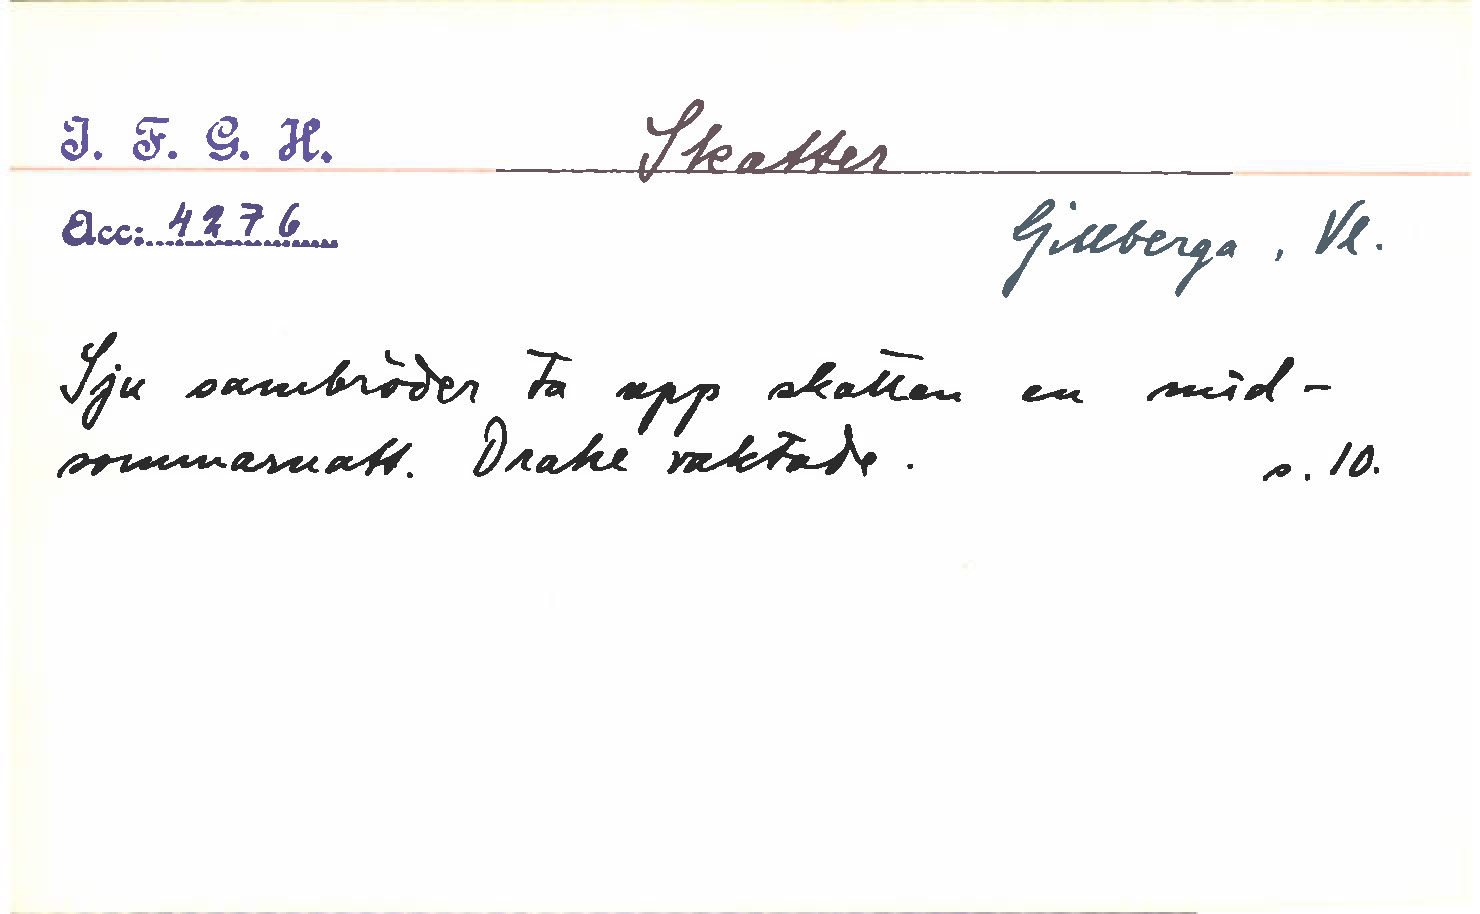 I. F. G. H.
Skatter
Acc: 4276
Gillberga, Vl.
Sju sambröder ta upp skatten en mid-
sommarnatt. Drake vaktade.
s. 10.